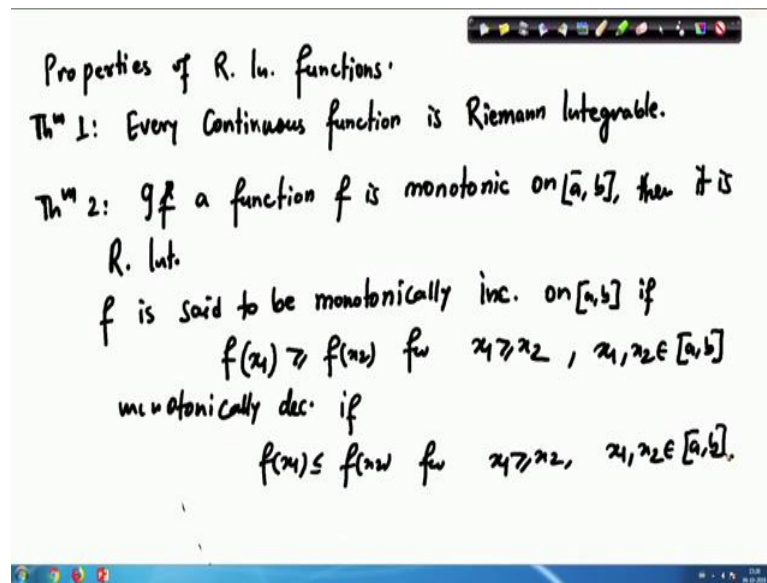 Properties of R. In. functions.
Thm 1: Every Continuous function is Riemann Integrable.
Thm 2: If a function f is monotonic on [a, b], then it is
R. Int.
f is said to be monotonically inc. on [a, b] if
f(x1) ≥ f(x2) for x1 ≥ x2 , x1, x2 ∈ [a, b]
monotonically dec. if
f(x1) ≤ f(x2) for x1 ≥ x2, x1, x2 ∈ [a, b].